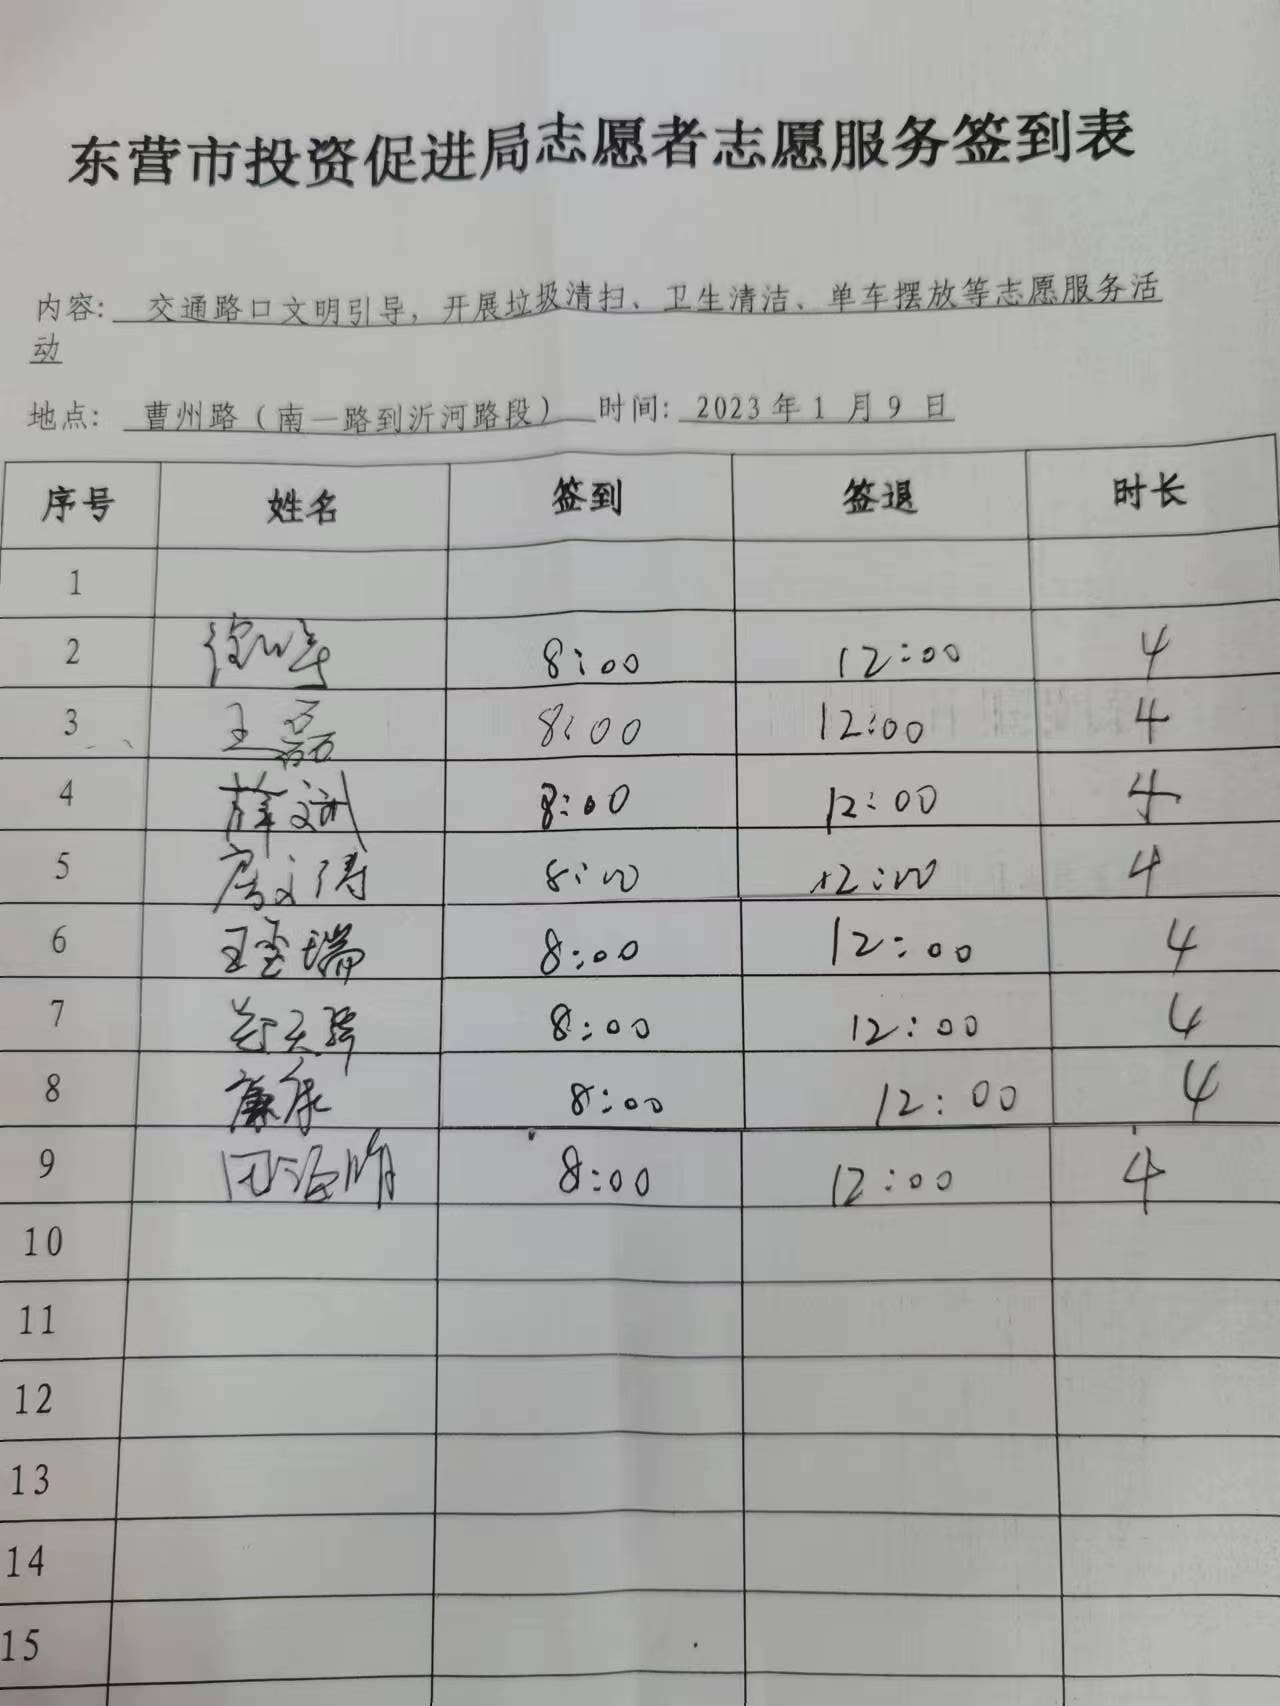 东营市投资促进局志愿者志愿服务签到表
内容: 交通路口文明引导，开展垃圾清扫、卫生清洁、单车摆放等志愿服务活
动
地点: 曹州路（南一路到沂河路段） 时间: 2023年1月9日
序号 姓名 签到 签退 时长
1
2 8:00 12:00 4
3 王磊 8:00 12:00 4
4 薛文斌 8:00 12:00 4
5 8:00 12:00 4
6 瑞 8:00 12:00 4
7 8:00 12:00 4
8 廉康 8:00 12:00 4
9 8:00 12:00 4
10
11
12
13
14
15